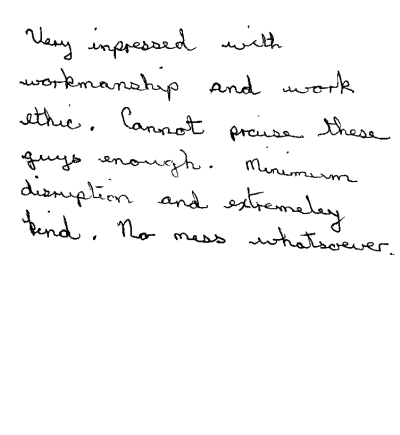 Very inpressed with
workmanship and work
ethic. Cannot praise these
guys enough. Minimum
disruption and extremeley
kind. No mess whatsoever.